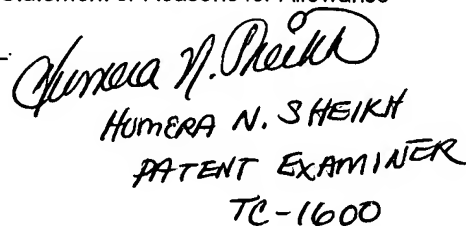 Statement of Reasons for Allowance
Humera N. Sheikh
HUMERA N. SHEIKH
PATENT EXAMINER
TC-1600